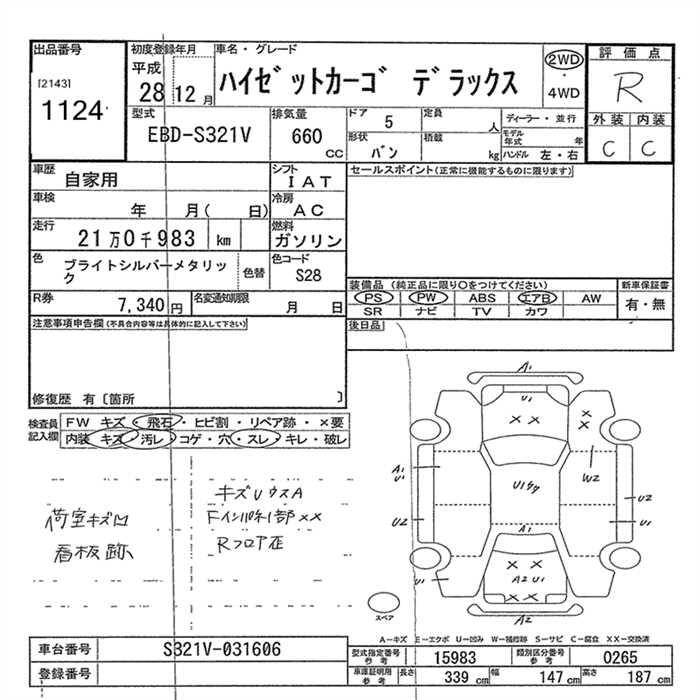 出品番号
[2143]
1124
初度登録年月
平成
28 12 月
車名・グレード
ハイゼットカーゴ デラックス
2WD
・
4WD
評価点
R
外装 内装
C C
型式
EBD-S321V
排気量
660
CC
ドア
5
形状
バン
定員
人
積載
kg
ディーラー・並行
モデル
年式 年
ハンドル 左・右
車歴
自家用
シフト
IAT
セールスポイント(正常に機能するものに限ります)
車検
年 月( 日)
冷房
AC
走行
21万0千983 km
燃料
ガソリン
色
ブライトシルバーメタリッ
ク
色替
色コード
S28
装備品 (純正品に限り○をつけてください)
PS PW ABS エアB AW
SR ナビ TV カワ
新車保証書
有・無
R券
7,340 円
名変通知期限
月 日
後日品
注意事項申告欄(不具合内容等は具体的に記入して下さい)
修復歴 有〔箇所 〕
検査員
記入欄
FW キズ・飛石・ヒビ割・リペア跡・×要
内装 キズ・汚レ・コゲ・穴・スレ・キレ・破レ
キズUウスA
荷室キズ凹
看板跡
Rフロア歪
A1
U1
××
×
×
A1
U1
W2
U2
U2
U1
A1
××
A2 U1
××
U1
A2
スペア
A-キズ E-エクボ U-凹み W-補修跡 S-サビ C-腐食 XX-交換済
車台番号
S321V-031606
登録番号
型式指定番号
参考
15983
類別区分番号
参考
0265
車庫証明用
参考
長さ
339 cm
幅
147 cm
高さ
187 cm